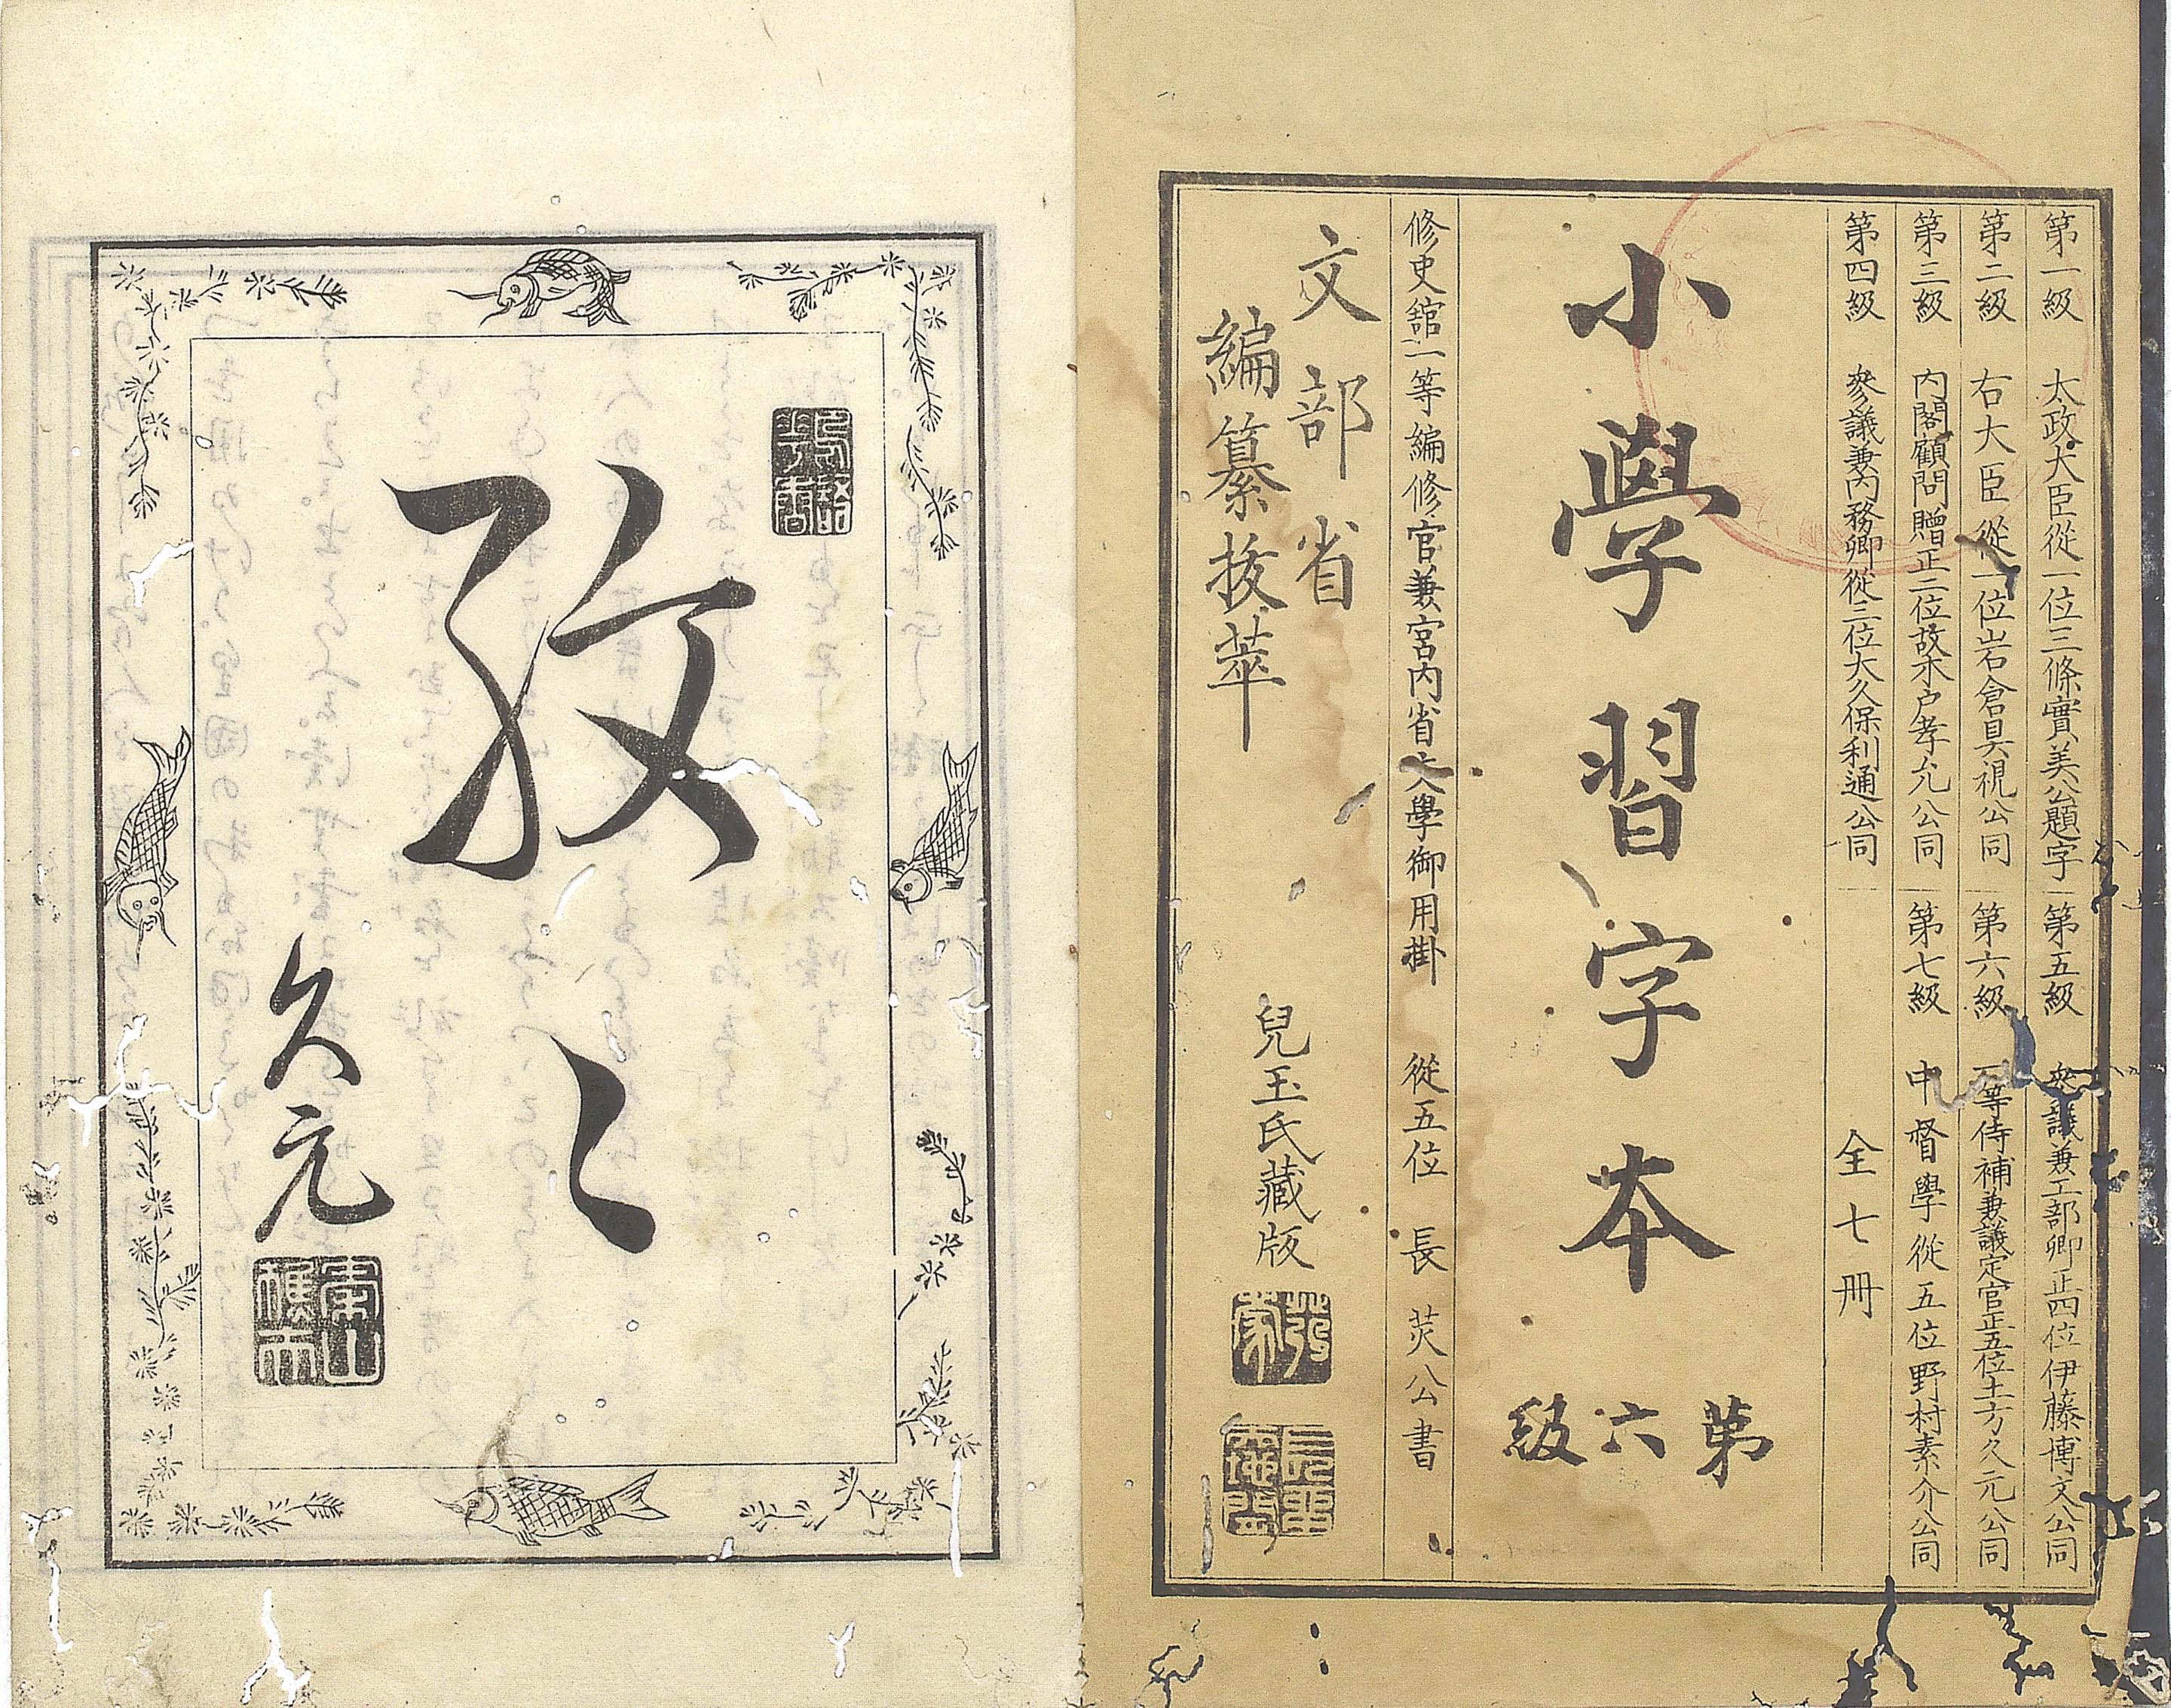 第一級 太政大臣從一位三條實美公題字
第二級 右大臣從一位岩倉具視公同
第三級 内閣顧問贈正二位故木戸孝允公同
第四級 參議兼内務卿從三位大久保利通公同
第五級 參議兼工部卿正四位伊藤博文公同
第六級 一等侍補兼議定官正五位土方久元公同
第七級 中督學從五位野村素介公同
全七冊
小學習字本
第六級
修史舘一等編修官兼宮内省文學御用掛 從五位 長 炗公書
文部省
編纂拔萃
兒玉氏藏版
孜〻
久元